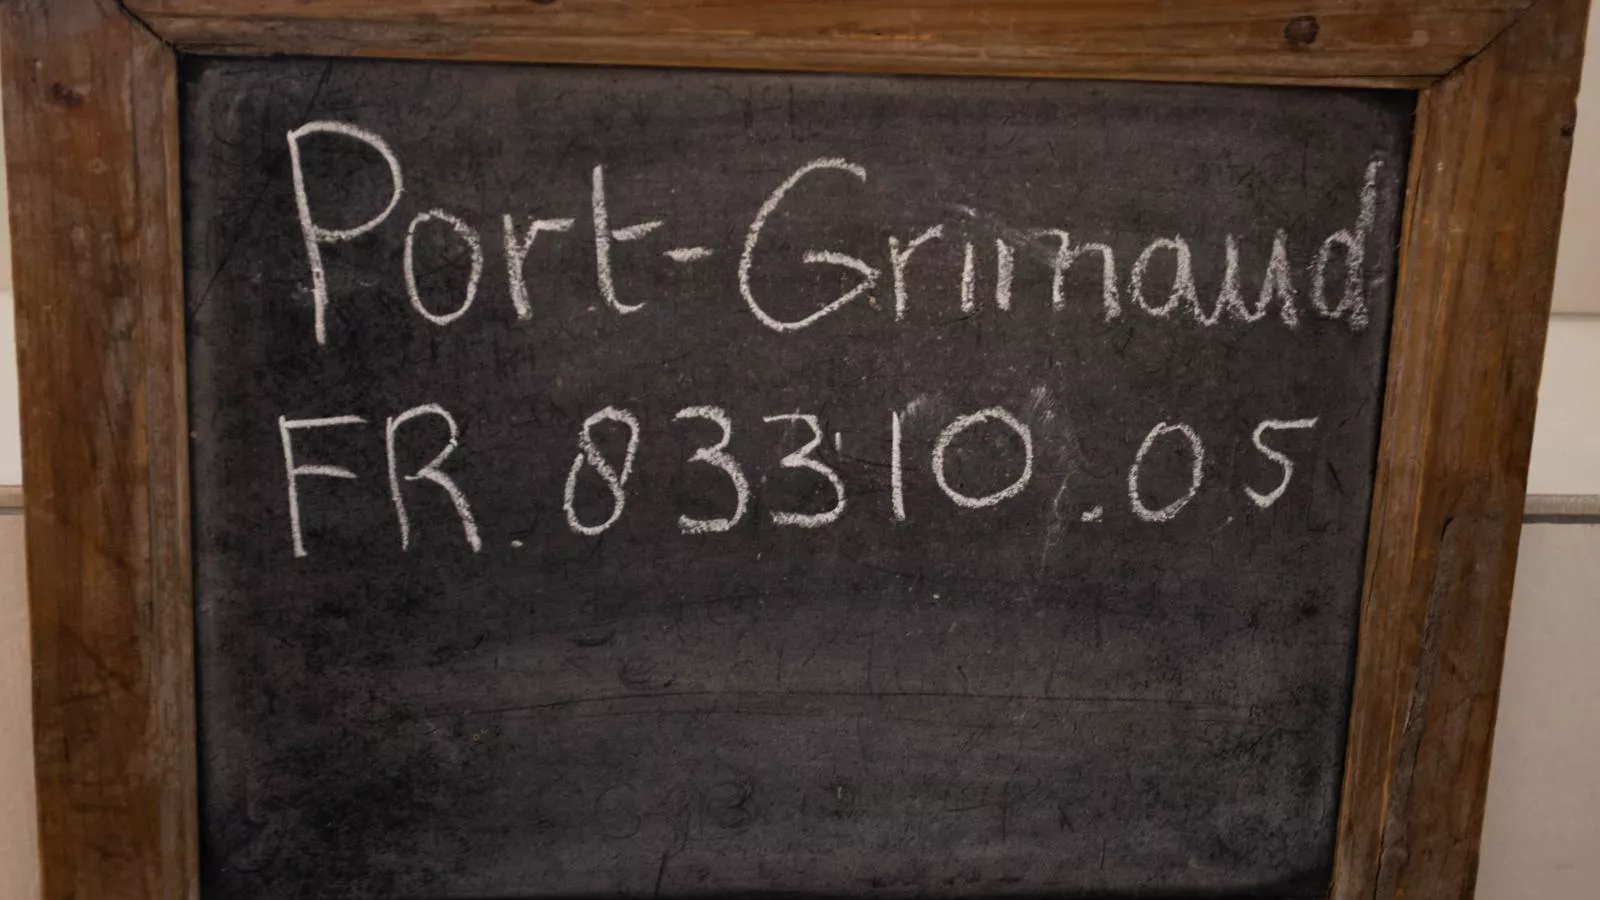 Port-Grimaud
FR.83310.05